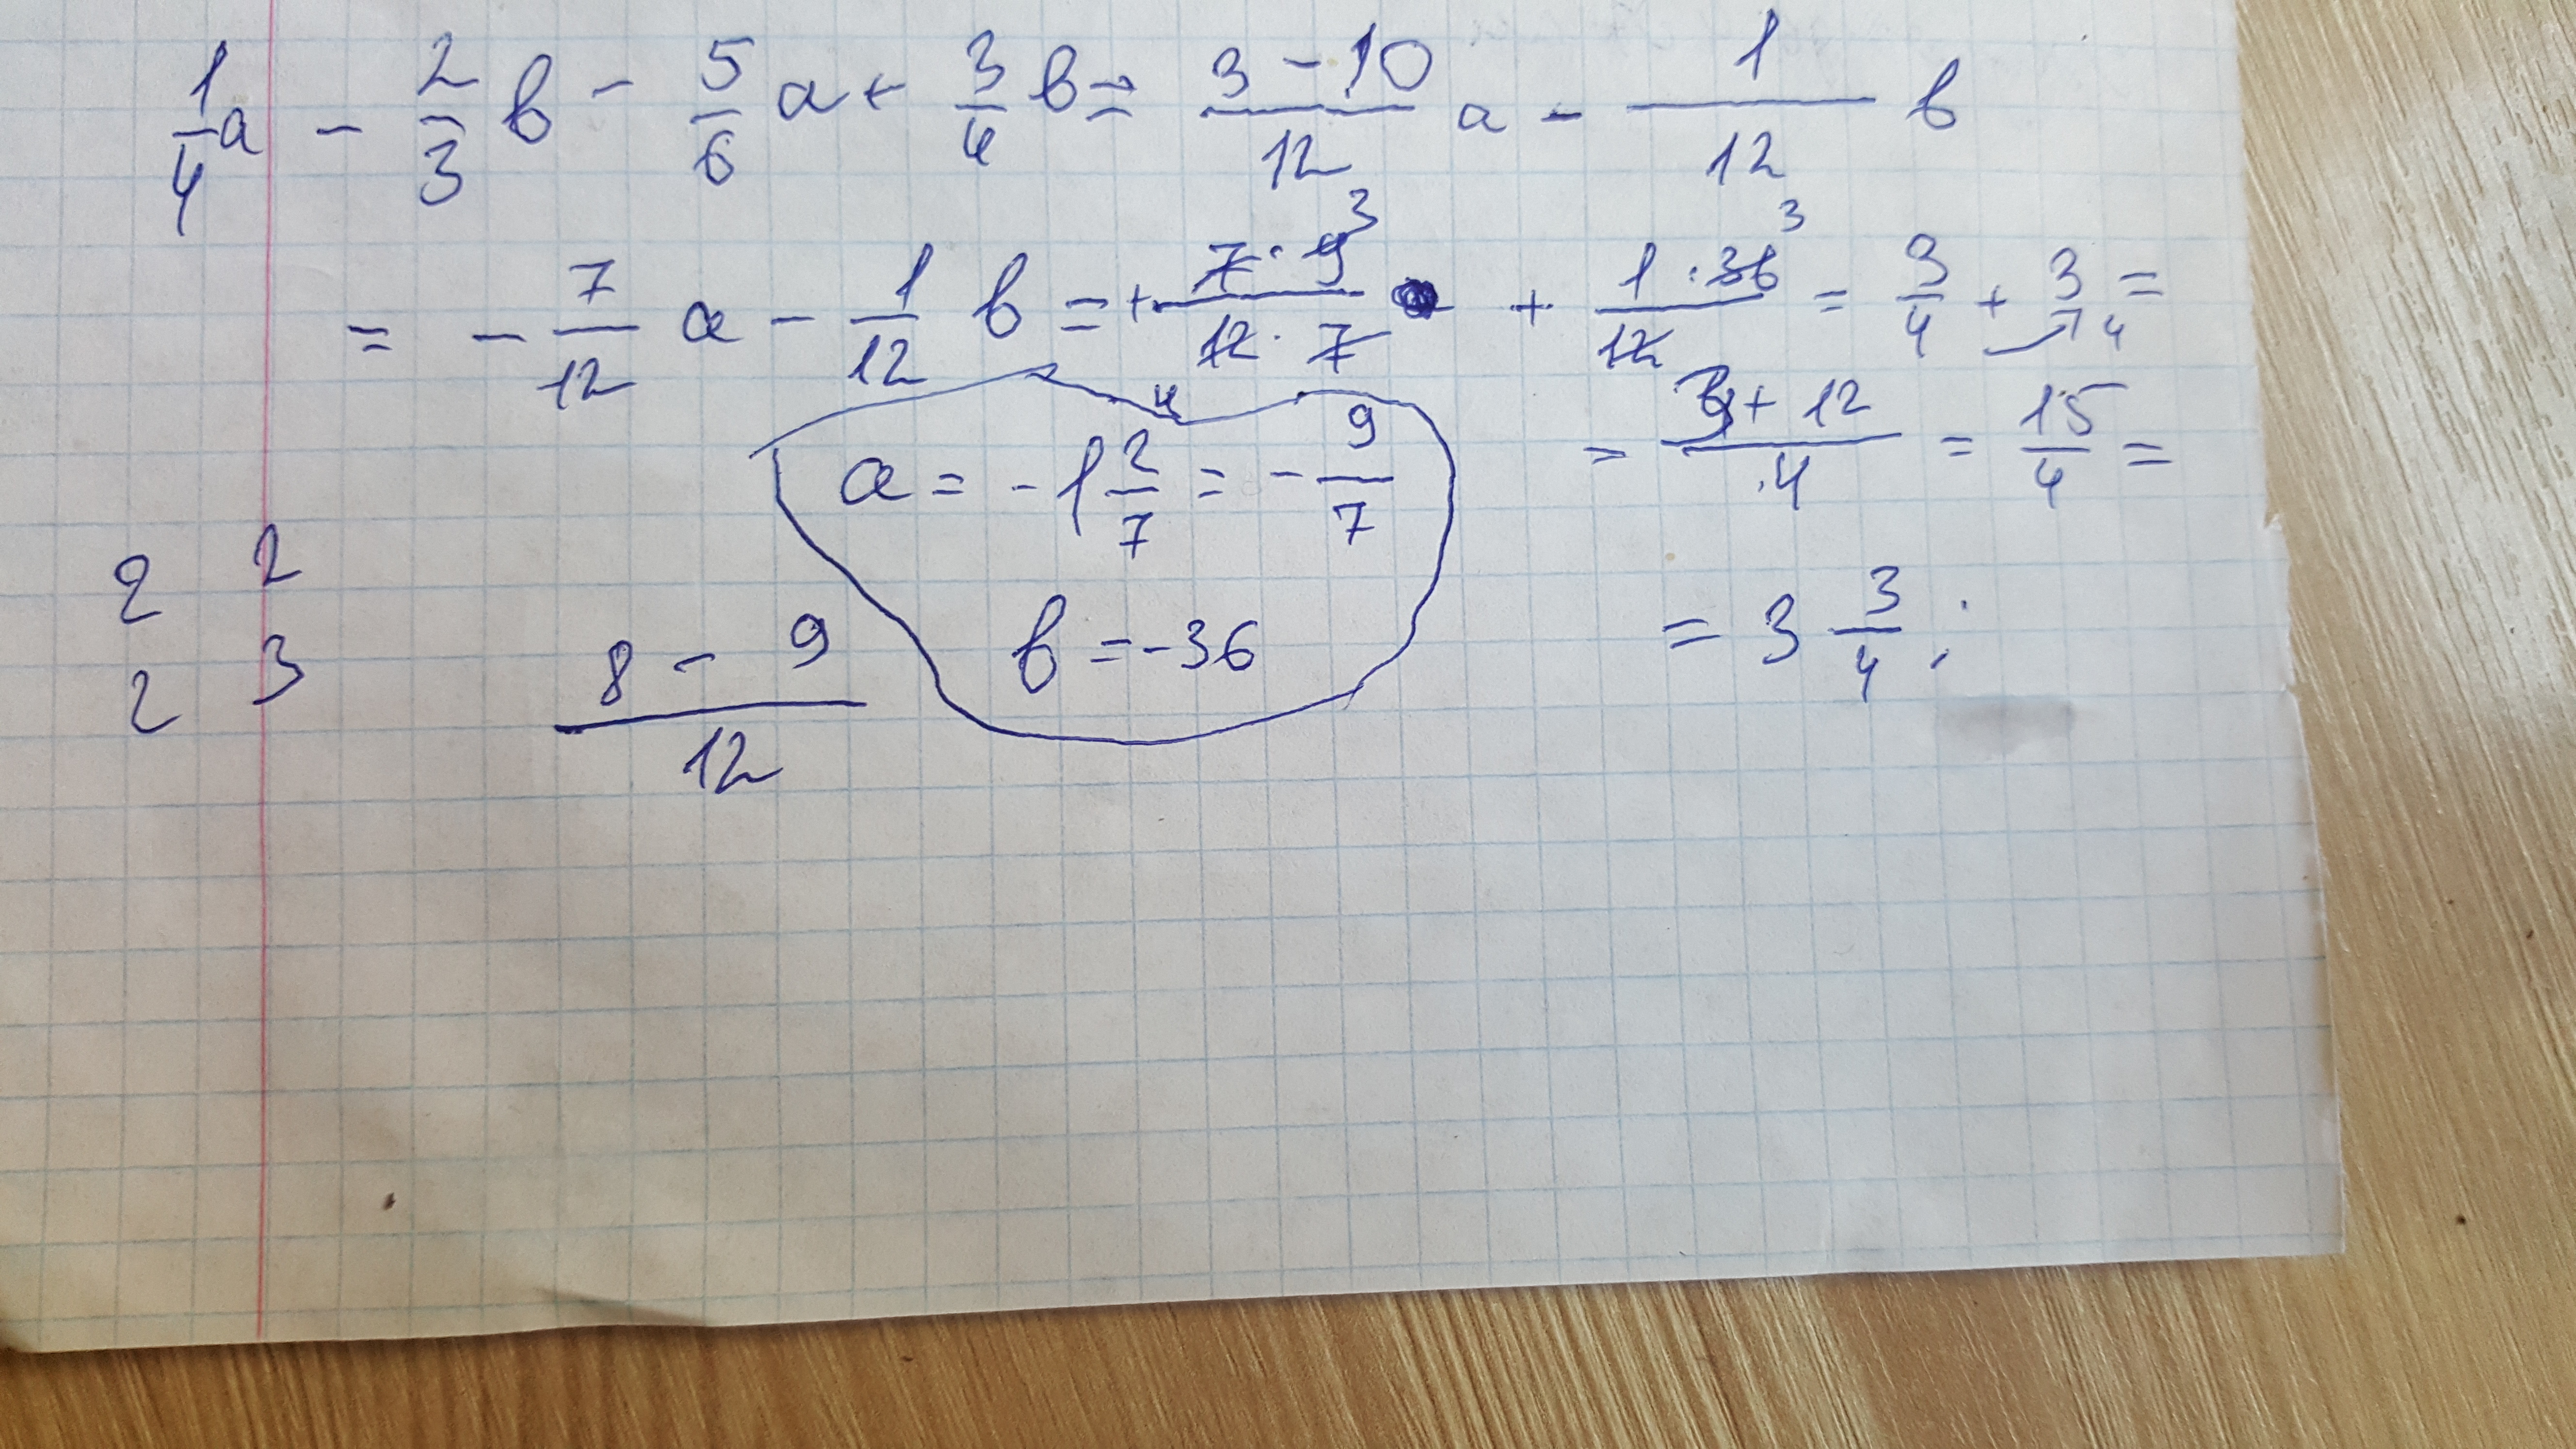 1/4 a - 2/3 b - 5/6 a + 3/4 b = (3 - 10)/12 a - 1/12 b
= - 7/12 a - 1/12 b = + (7 · 9)/(12 · 7) + (1 · 36)/12 = 3/4 + 3 =
3 4 3 4
= (3 + 12)/4 = 15/4 =
a = -1 2/7 = - 9/7
b = -36
= 3 3/4 ;
2 2
2 3
(8 - 9)/12